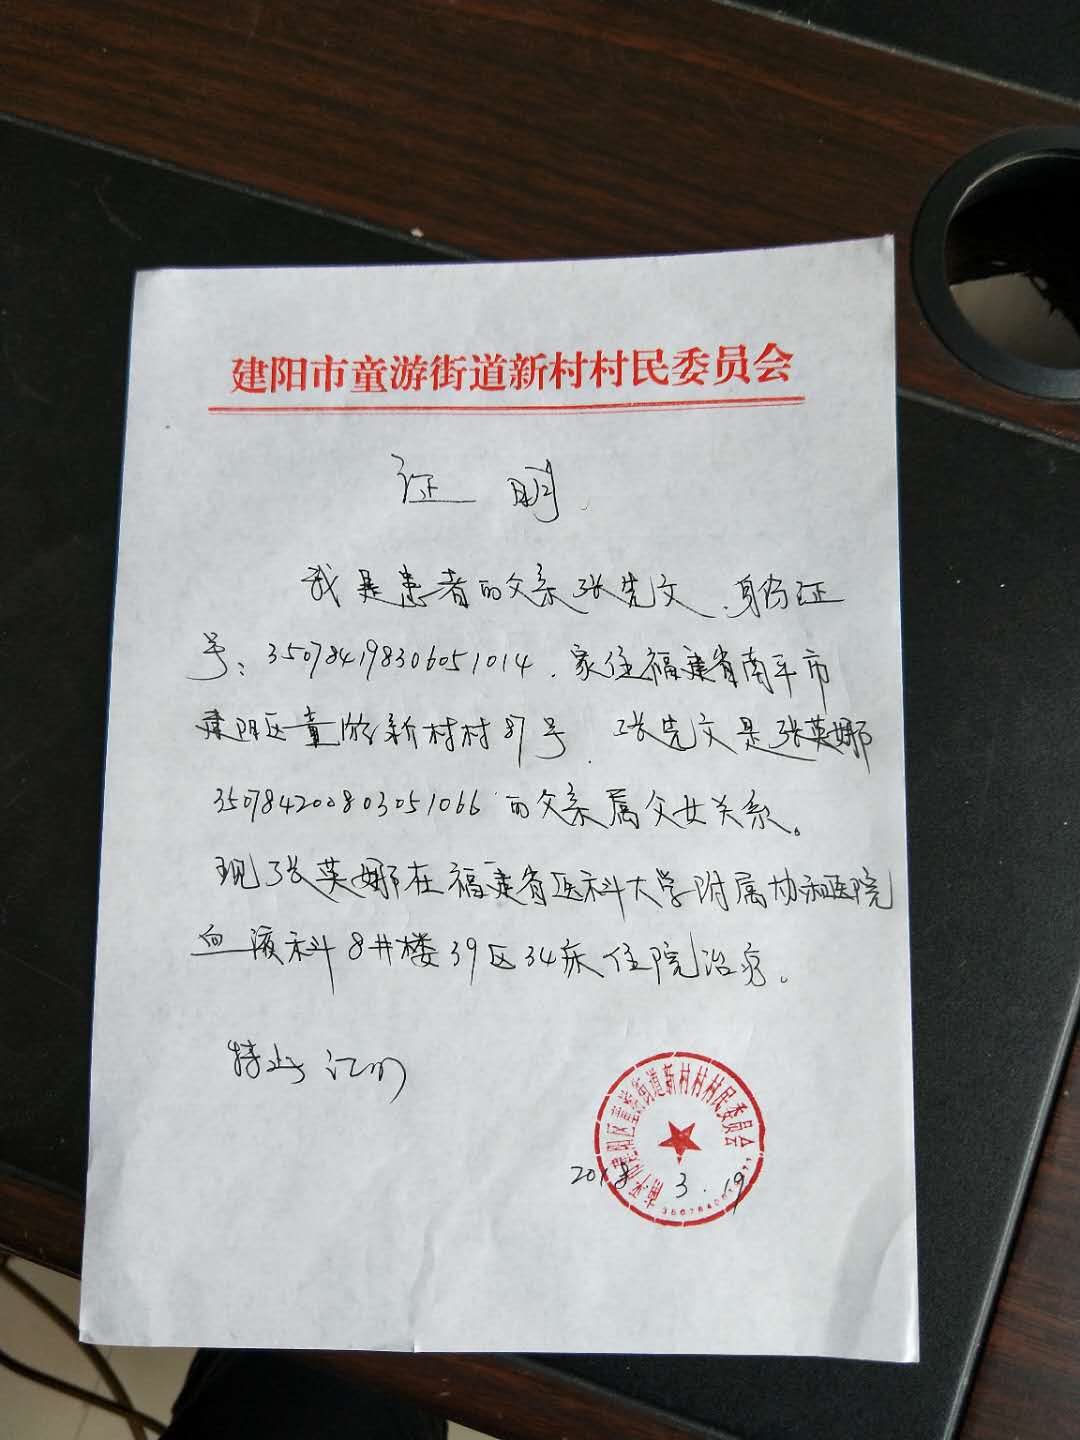 建阳市童游街道新村村民委员会
证明
我是患者的父亲张先文、身份证
号:350784198306051014.家住福建省南平市
建阳区童游新村村87号.张先文是张英娜
350784200803051066的父亲属父女关系。
现张英娜在福建省医科大学附属协和医院
血液科8井楼39区34床住院治疗。
特此证明
南平市建阳区童游街道新村村村民委员会
2018.3.19